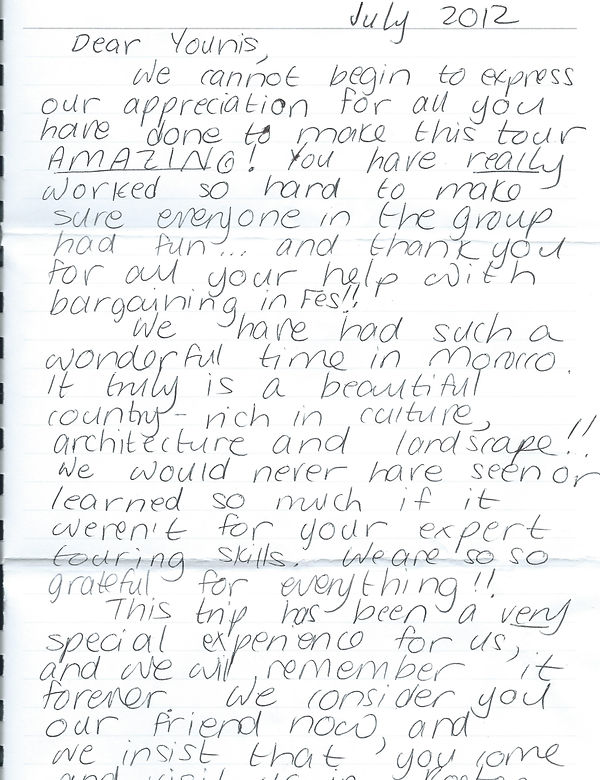 July 2012
Dear Younis,
We cannot begin to express
our appreciation for all you
have done to make this tour
AMAZING! You have really
worked so hard to make
sure everyone in the group
had fun... and thank you
for all your help with
bargaining in Fes!!
We have had such a
wonderful time in Morocco.
It truly is a beautiful
country - rich in culture,
architecture and landscape!!
We would never have seen or
learned so much if it
weren't for your expert
touring skills. We are so so
grateful for everything!!
This trip has been a very
special experience for us,
and we will remember it
forever. We consider you
our friend now, and
we insist that you come
and visit us in